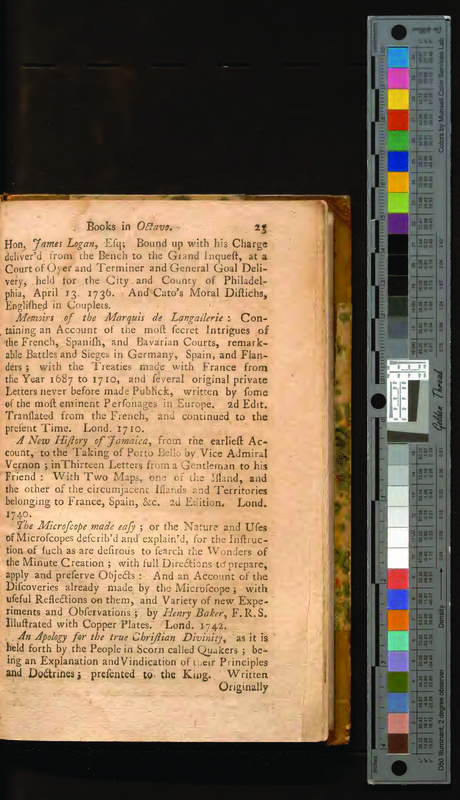 Books in Octavo. 23
Hon, James Logan, Eſq; Bound up with his Charge
deliver'd from the Bench to the Grand Inqueſt, at a
Court of Oyer and Terminer and General Goal Deli-
very, held for the City and County of Philadel-
phia, April 13. 1736. And Cato's Moral Diſtichs,
Engliſhed in Couplets.
Memoirs of the Marquis de Langallerie: Con-
taining an Account of the moſt ſecret Intrigues of
the French, Spaniſh, and Bavarian Courts, remark-
able Battles and Sieges in Germany, Spain, and Flan-
ders; with the Treaties made with France from
the Year 1687 to 1710, and ſeveral original private
Letters never before made Publick, written by ſome
of the moſt eminent Perſonages in Europe. 2d Edit.
Tranſlated from the French, and continued to the
preſent Time. Lond. 1710.
A New Hiſtory of Jamaica, from the earlieſt Ac-
count, to the Taking of Porto Bello by Vice Admiral
Vernon; in Thirteen Letters from a Gentleman to his
Friend: With Two Maps, one of the Iſland, and
the other of the circumjacent Iſlands and Territories
belonging to France, Spain, &c. 2d Edition. Lond.
1740.
The Microſcope made eaſy; or the Nature and Uſes
of Microſcopes deſcrib'd and explain'd, for the Inſtruc-
tion of ſuch as are deſirous to ſearch the Wonders of
the Minute Creation; with full Directions to prepare,
apply and preſerve Objects: And an Account of the
Diſcoveries already made by the Microſcope; with
uſeful Reflections on them, and Variety of new Expe-
riments and Obſervations; by Henry Baker, F. R. S.
Illuſtrated with Copper Plates. Lond. 1742.
An Apology for the true Chriſtian Divinity, as it is
held forth by the People in Scorn called Quakers; be-
ing an Explanation and Vindication of their Principles
and Doctrines; preſented to the King. Written
Originally
Colors by Munsell Color Services Lab
Golden Thread
Density
D50 Illuminant, 2 degree observer
inches